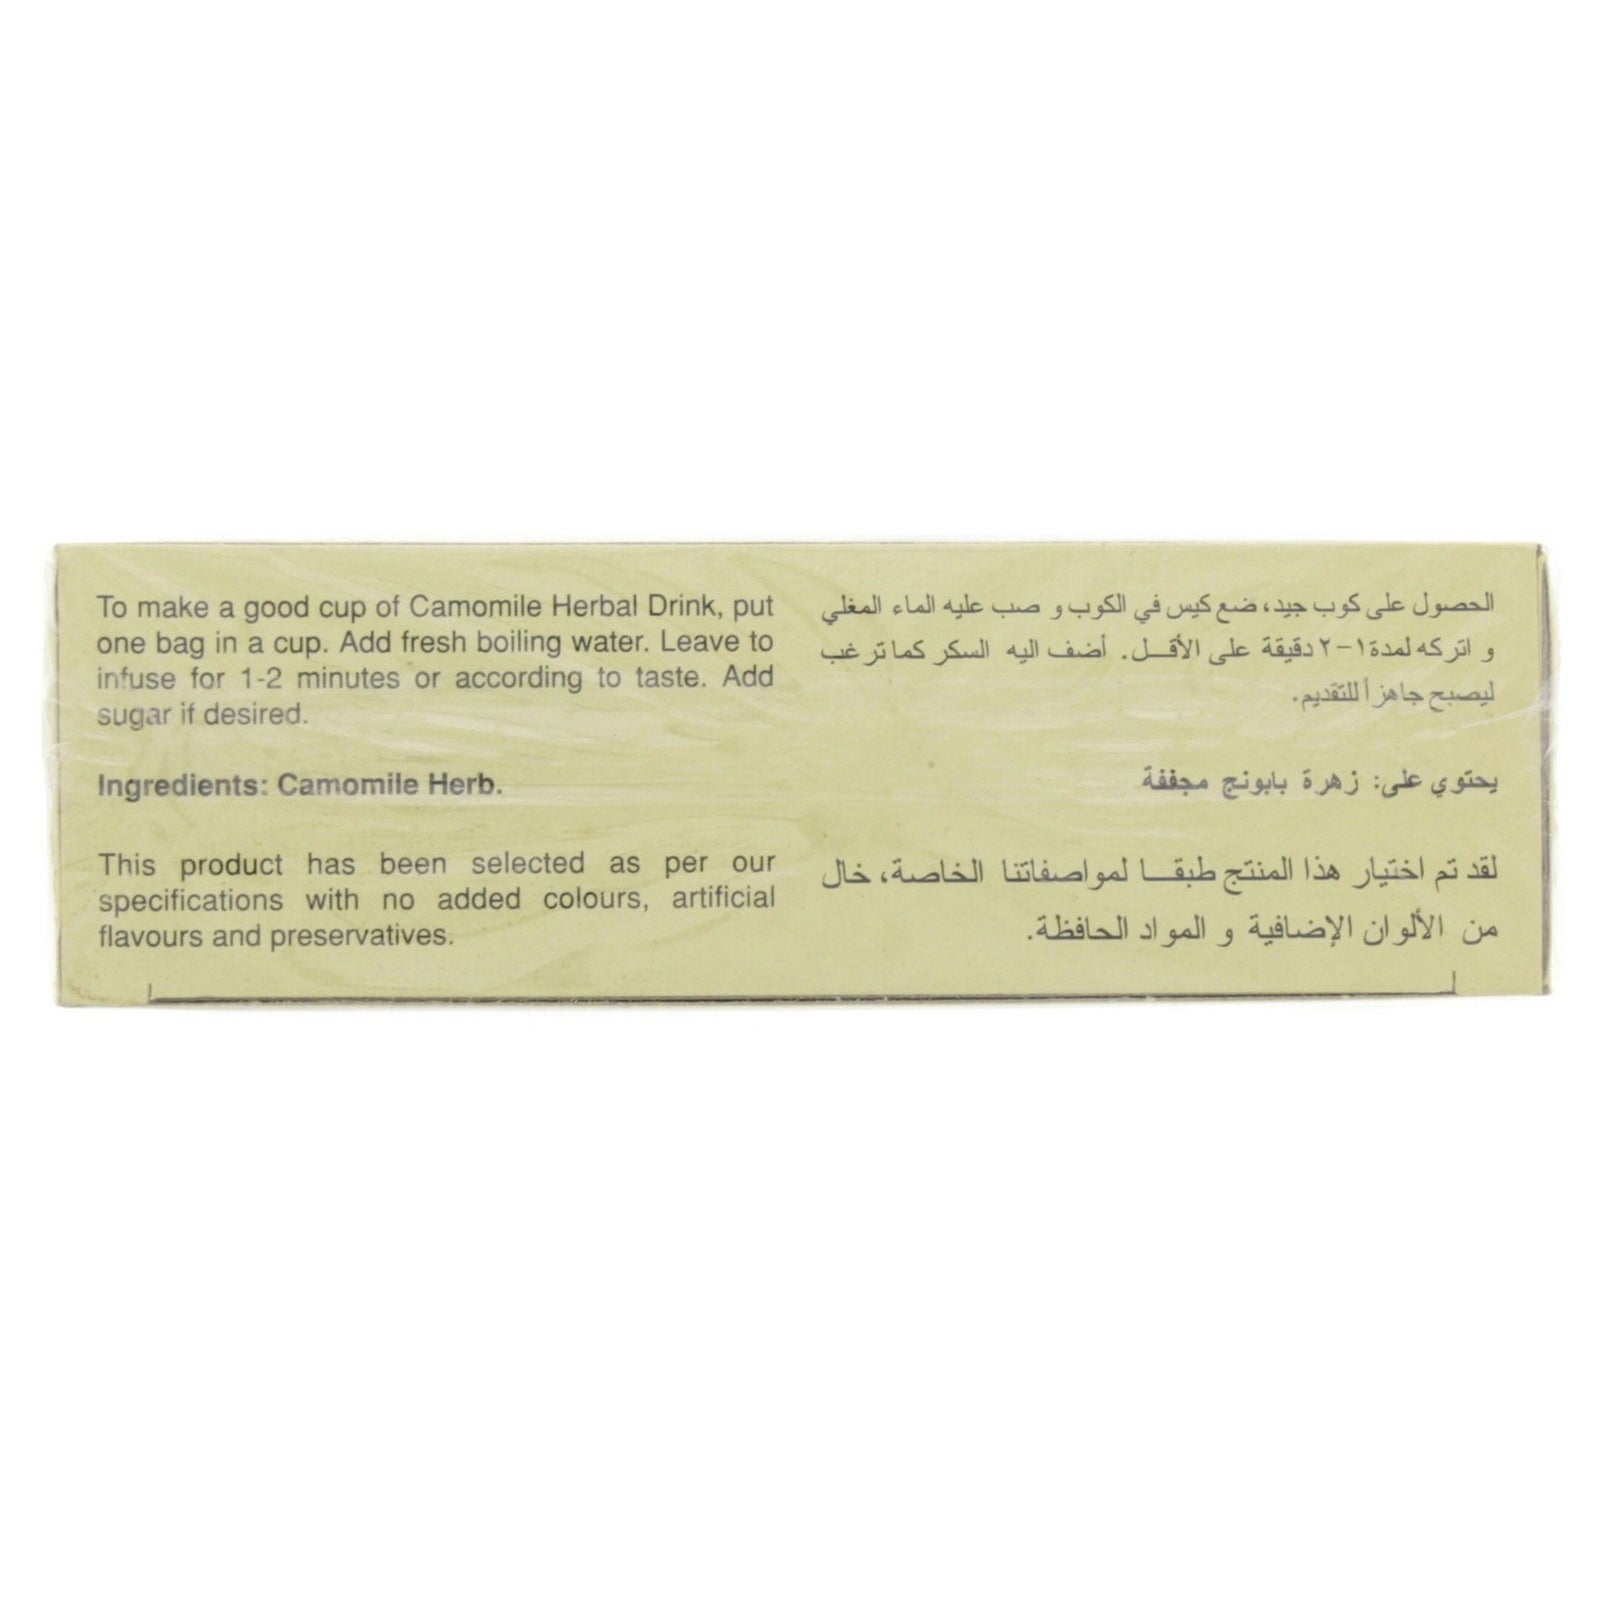 To make a good cup of Camomile Herbal Drink, put
one bag in a cup. Add fresh boiling water. Leave to
infuse for 1-2 minutes or according to taste. Add
sugar if desired.
Ingredients: Camomile Herb.
This product has been selected as per our
specifications with no added colours, artificial
flavours and preservatives.
الحصول على كوب جيد، ضع كيس في الكوب و صب عليه الماء المغلي
و اتركه لمدة ١-٢ دقيقة على الأقـل. أضف اليه السكر كما ترغب
ليصبح جاهزاً للتقديم.
يحتوي على: زهرة بابونج مجففة
لقد تم اختيار هذا المنتج طبقـا لمواصفاتنا الخاصة، خال
من الألوان الإضافية و المواد الحافظة.